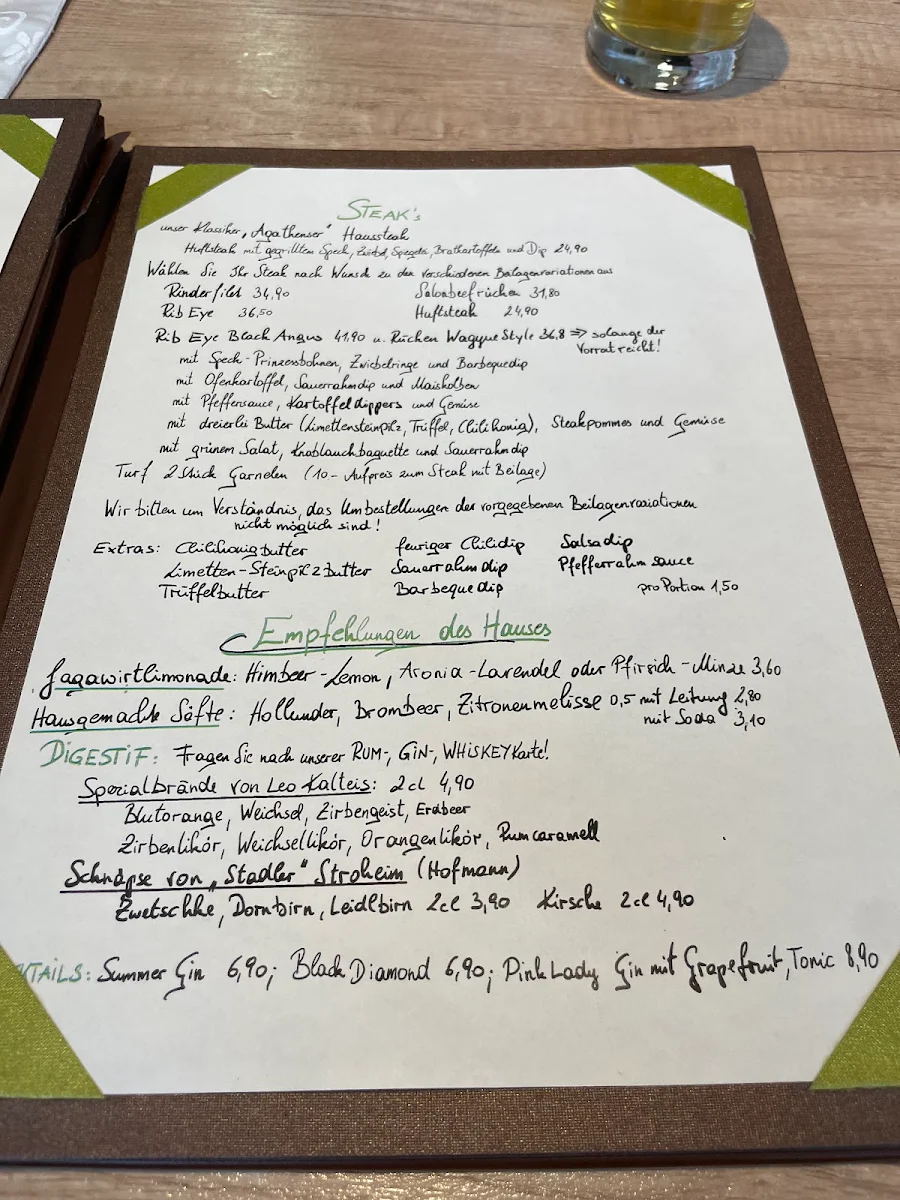 STEAK's
unser Klassiker „Agathenser" Haussteak
Huftsteak mit gegrillten Speck, Zwiebel, Spiegelei, Bratkartoffeln und Dip 24,90
Wählen Sie Ihr Steak nach Wunsch zu den verschiedenen Beilagenvariationen aus
Rinderfilet 34,90 Salonbeefrücken 31,80
Rib Eye 36,50 Huftsteak 24,90
Rib Eye Black Angus 41,90 u. Rücken Wagyue Style 36,8 => solange der
Vorrat reicht!
mit Speck-Prinzessbohnen, Zwiebelringe und Barbequedip
mit Ofenkartoffel, Sauerrahmdip und Maiskolben
mit Pfeffersauce, Kartoffeldippers und Gemüse
mit dreierlei Butter (Limettensteinpilz, Trüffel, Chilihonig), Steakpommes und Gemüse
mit grünem Salat, Knoblauchbaguette und Sauerrahmdip
Turf 2 Stück Garnelen (10- Aufpreis zum Steak mit Beilage)
Wir bitten um Verständnis, das Umbestellungen der vorgegebenen Beilagenvariationen
nicht möglich sind!
Extras: Chilihonigbutter feuriger Chilidip Salsadip
Limetten-Steinpilzbutter Sauerrahmdip Pfefferrahmsauce
Trüffelbutter Barbequedip pro Portion 1,50
Empfehlungen des Hauses
Jagawirtlimonade: Himbeer-Lemon, Aronia-Lavendel oder Pfirsich-Minze 3,60
Hausgemachte Säfte: Hollunder, Brombeer, Zitronenmelisse 0,5 mit Leitung 2,80
mit Soda 3,10
DIGESTIF: Fragen Sie nach unserer RUM-, GIN-, WHISKEY Karte!
Spezialbrände von Leo Kalteis: 2cl 4,90
Blutorange, Weichsel, Zirbengeist, Erdbeer
Zirbenlikör, Weichsellikör, Orangenlikör, Rumcaramell
Schnäpse von „Stadler" Stroheim (Hofmann)
Zwetschke, Dornbirn, Leidlbirn 2cl 3,90 Kirsche 2cl 4,90
KTAILS: Summer Gin 6,90; Black Diamond 6,90; Pink Lady Gin mit Grapefruit, Tonic 8,90